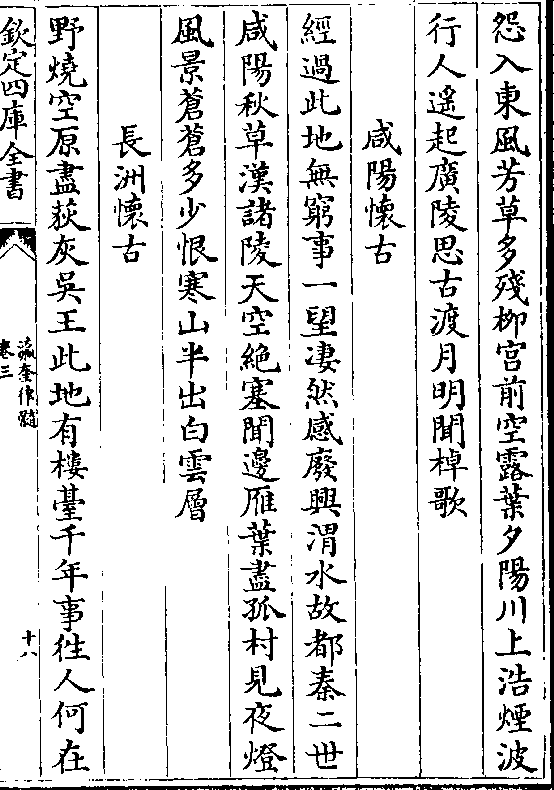 怨入東風芳草多殘柳宫前空露葉夕陽川上浩煙波
行人遥起廣陵思古渡月明聞棹歌
咸陽懷古
經過此地無窮事一望凄然感廢興渭水故都秦二世
咸陽秋草漢諸陵天空絶塞聞邊雁葉盡孤村見夜燈
風景蒼蒼多少恨寒山半出白雲層
長洲懷古
野燒空原盡荻灰吳王此地有樓臺千年事徃人何在
欽定四庫全書
瀛奎律髓
卷三
十八